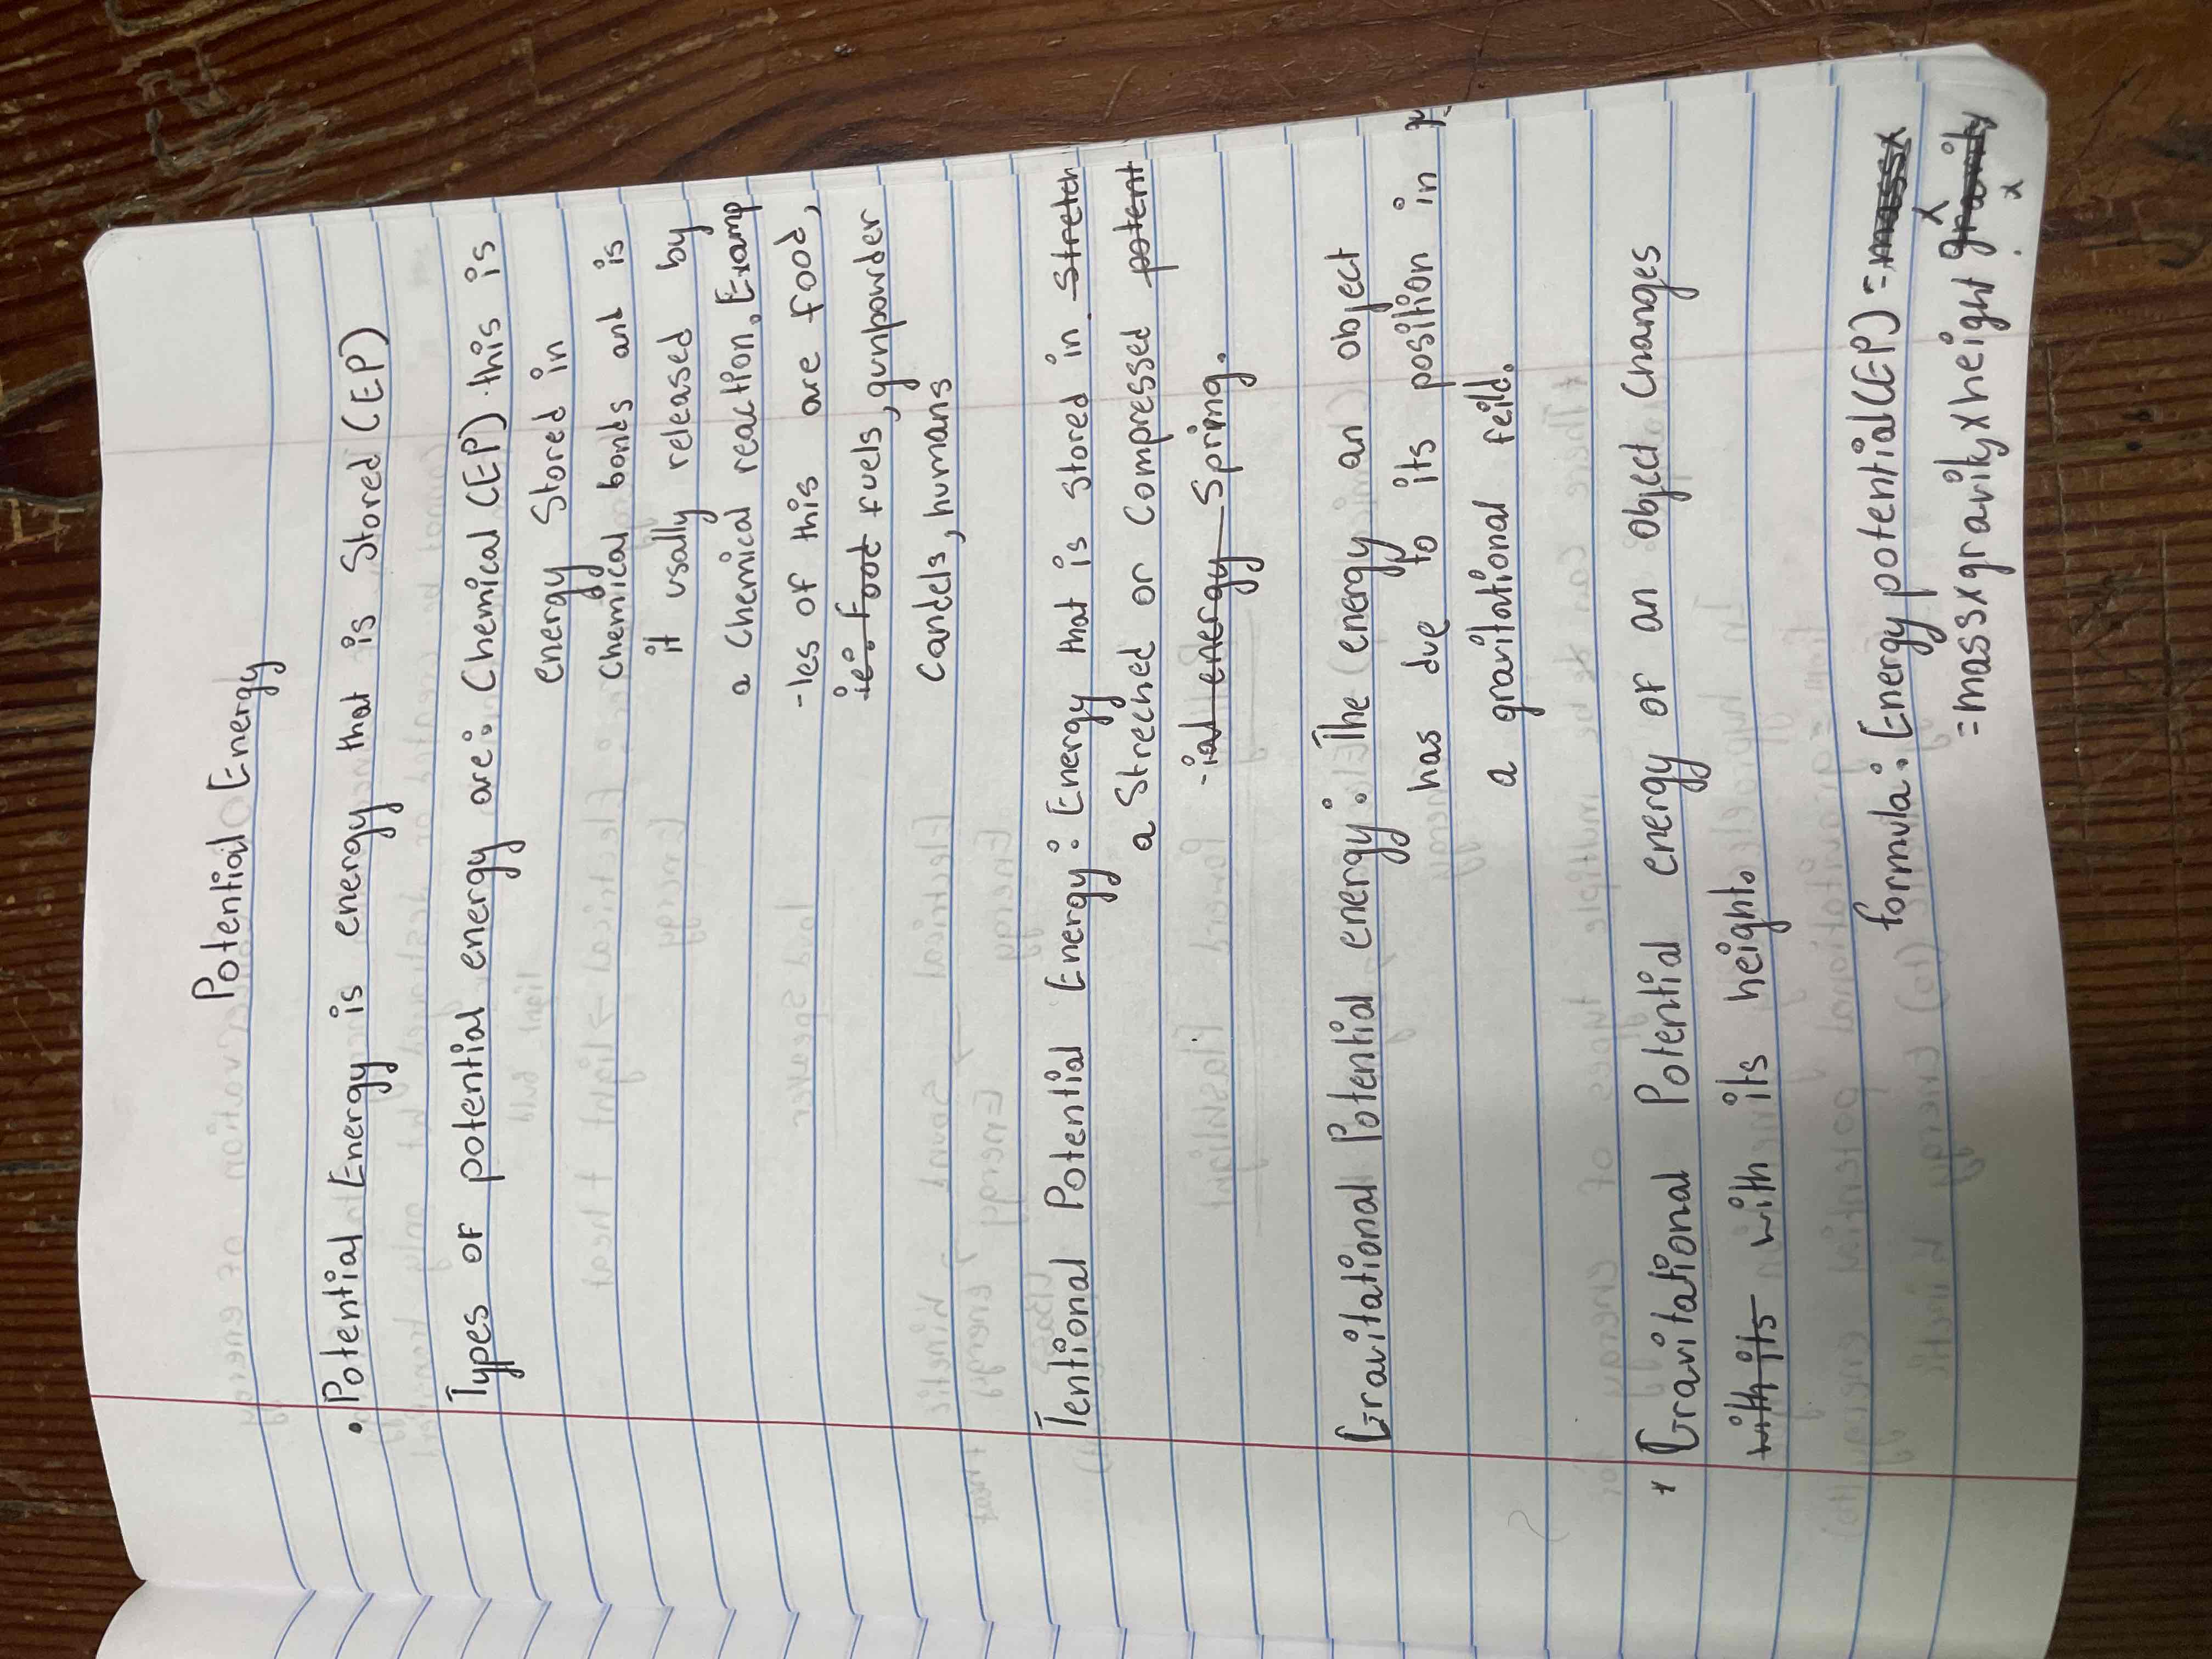 Potential Energy
• Potential Energy is energy that is Stored (EP)
Types of potential energy are: Chemical (EP) this is
energy Stored in
Chemical bonds and is
it usally released by
a Chemical reaction. Examp
-les of this are food,
ie: Food fuels, gunpowder
Candels, humans
Tentional Potential Energy: Energy that is stored in Stretch
a Streched or Compressed potent
-ial energy Spring.
Gravitational Potential energy: The energy an object
has due to its position in
a gravitational feild.
* Gravitational Potential energy of an object Changes
with its with its height.
formula: Energy potential (EP) = massx
=massxgravityxheight gravity